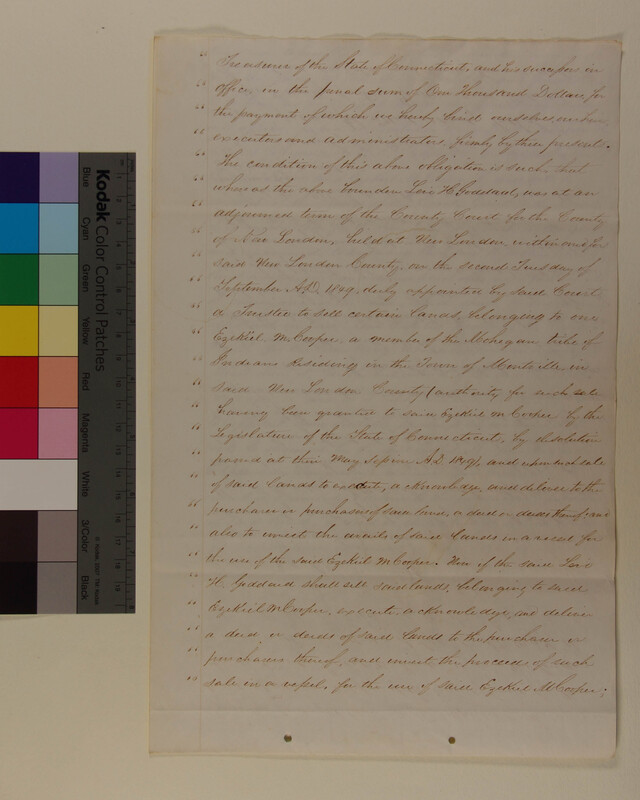 " Treasurer of the State of Connecticut, and his successors in
" office, in the penal sum of One Thousand Dollars, for
" the payment of which we hereby bind ourselves, our heirs,
" executors and administrators, firmly by these presents.
" The condition of this above obligation is such that
" whereas the above bounden Levi H. Goddard, was at an
" adjourned term of the County Court for the County
" of New London, held at New London within and for
" said New London County, on the second Tuesday of
" September A.D. 1849, duly appointed by said Court
" a Trustee to sell certain lands, belonging to one
" Ezekiel M. Cooper, a member of the Mohegan tribe of
" Indians residing in the Town of Montville in
" said New London County (authority for such sale
" having been granted to said Ezekiel M Cooper by the
" Legislature of the State of Connecticut, by resolution
" passed at their May session A.D. 1849), and upon such sale
" of said lands to execute, acknowledge, and deliver to the
" purchaser or purchasers of said lands, a deed or deeds thereof; and
" also to invest the avails of said lands in a vessel for
" the use of the said Ezekiel M Cooper. Now if the said Levi
" H. Goddard shall sell said lands, belonging to said
" Ezekiel M Cooper, execute, acknowledge, and deliver
" a deed, or deeds of said lands to the purchaser or
" purchasers thereof, and invest the proceeds of such
" sale in a vessel, for the use of said Ezekiel M Cooper;
Kodak Color Control Patches
Blue
Cyan
Green
Yellow
Red
Magenta
White
3/Color
Black